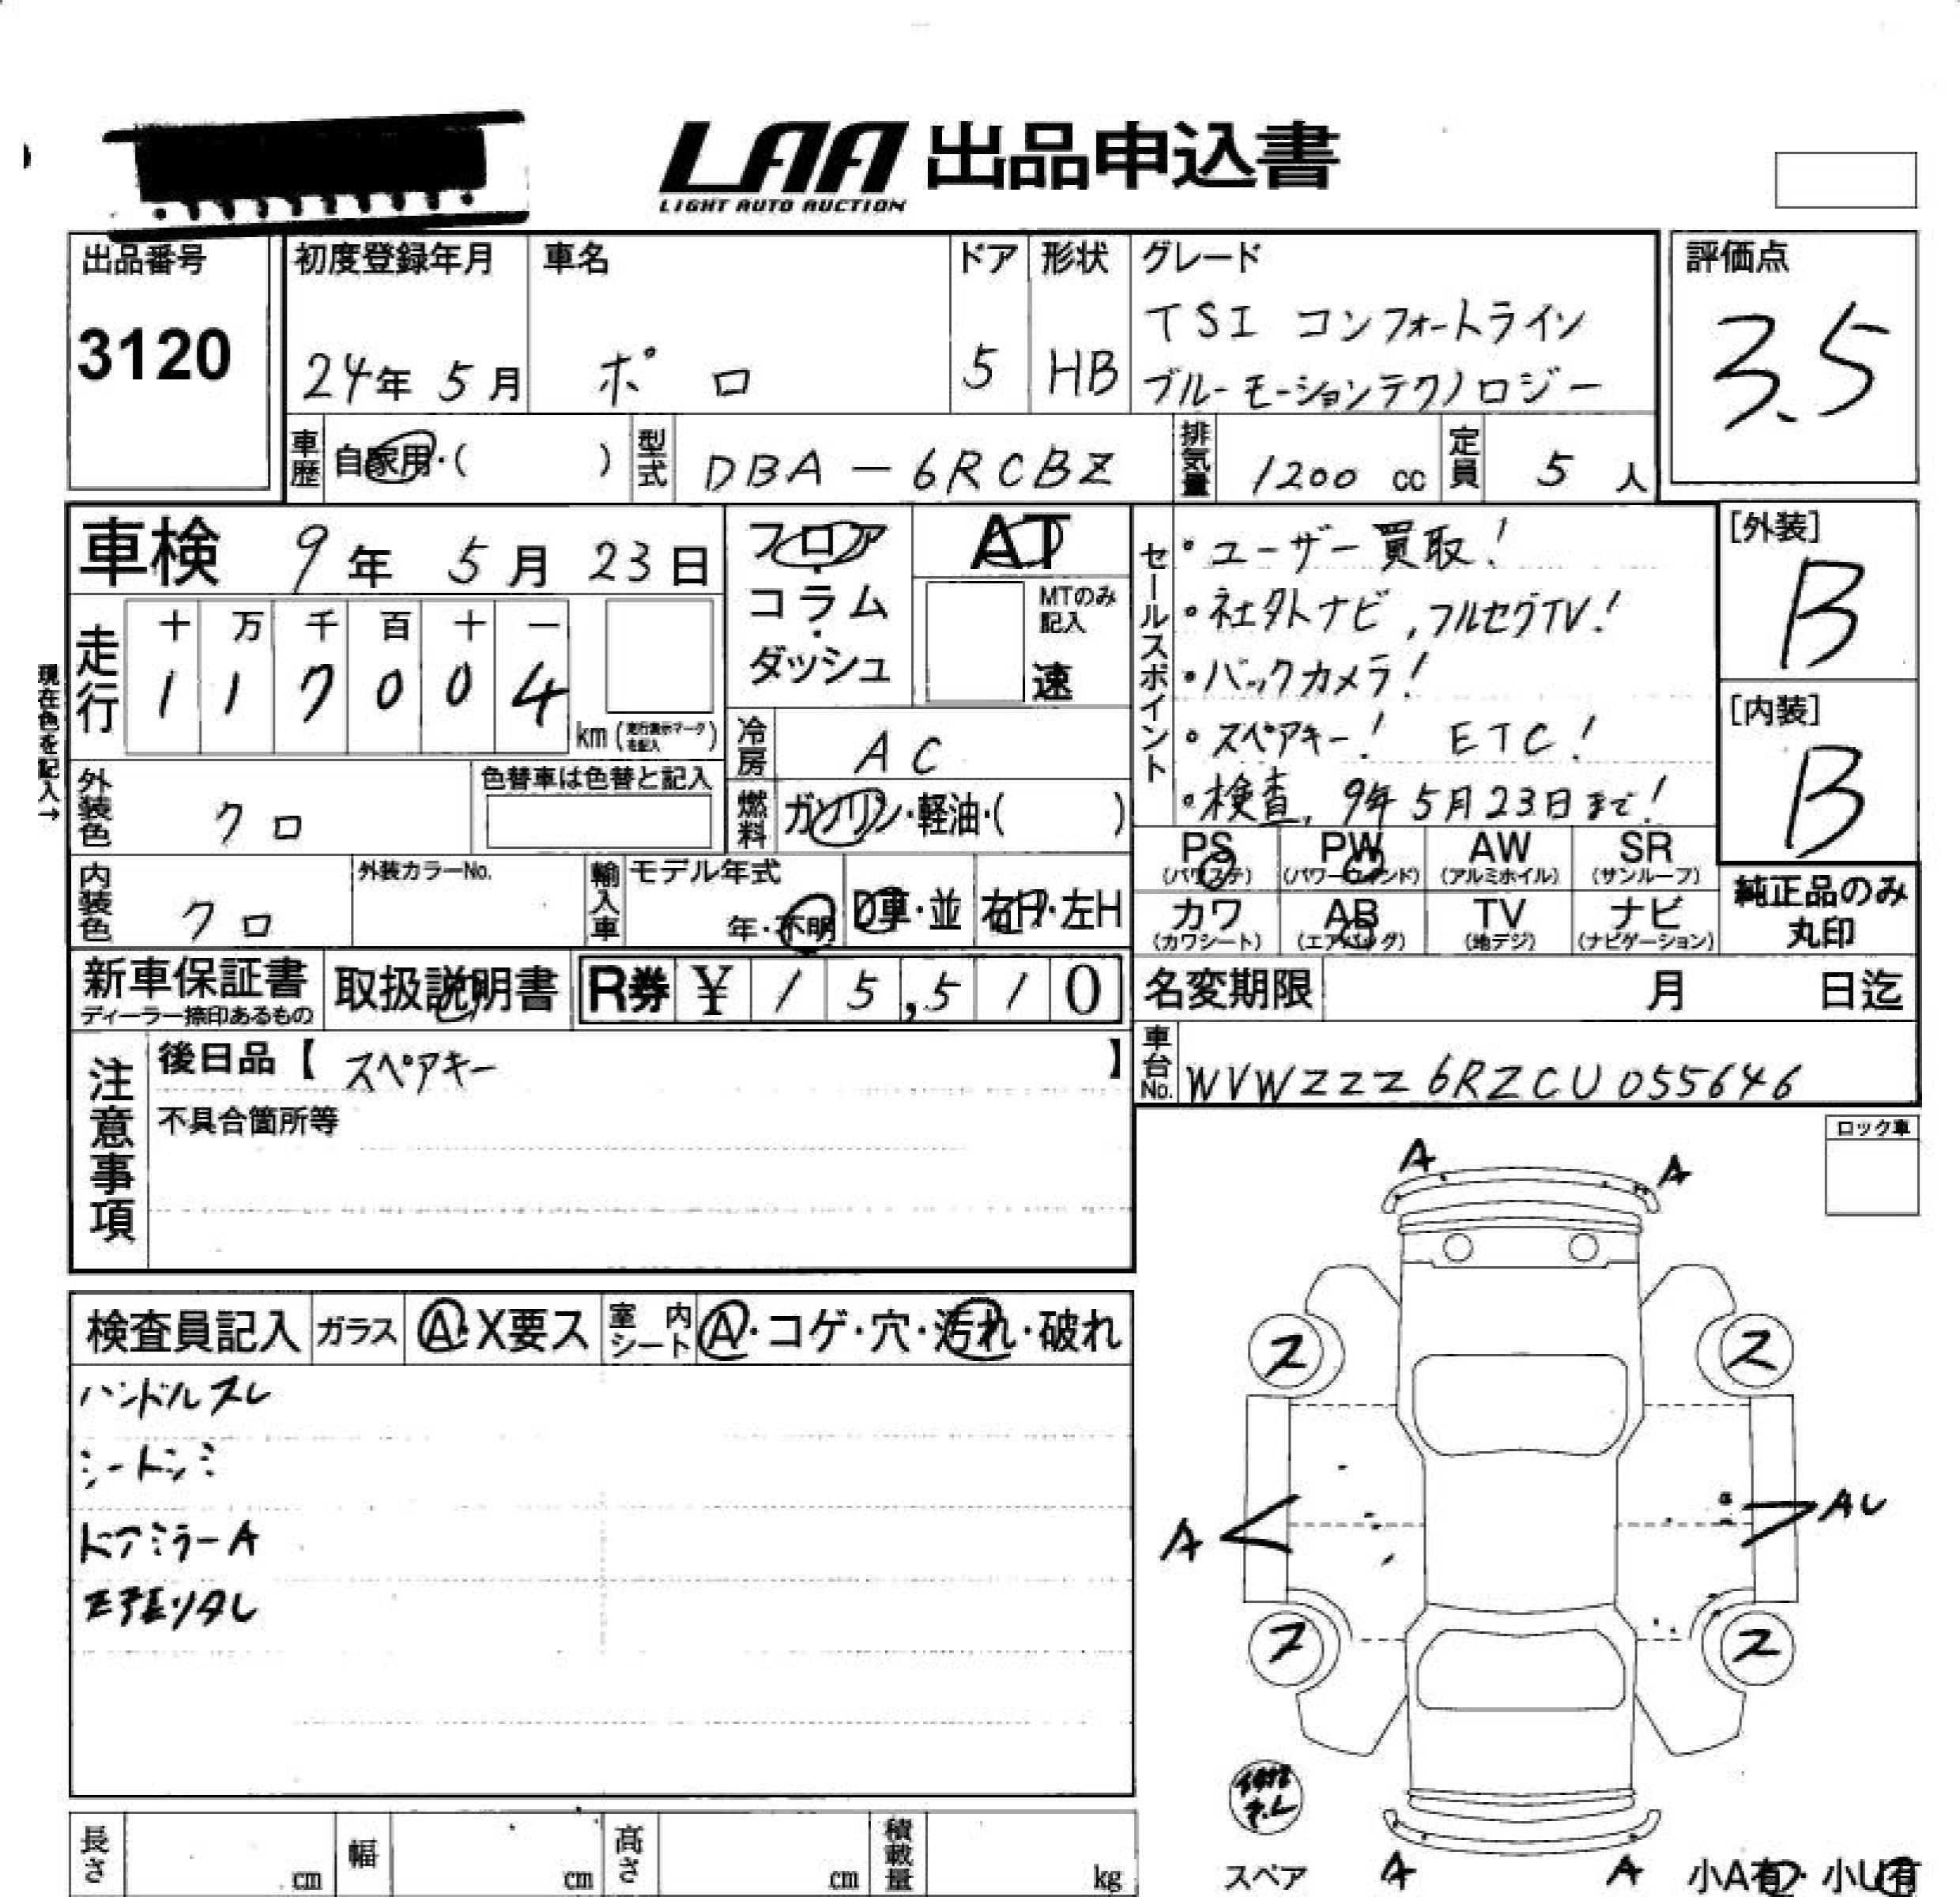 LAA 出品申込書
LIGHT AUTO AUCTION
出品番号
3120
初度登録年月
24年 5月
車名
ポロ
ドア
5
形状
HB
グレード
TSI コンフォートライン
ブルーモーションテクノロジー
評価点
3.5
車歴 自家用・( )
型式 DBA-6RCBZ
排気量 1200 cc
定員 5 人
車検 9年 5月 23日
走行
十 万 千 百 十 一
1 1 7 0 0 4 km (走行表示マークを記入)
現在色を記入→
フロア・コラム・ダッシュ
AT
MTのみ記入
速
冷房 AC
燃料 ガソリン・軽油・( )
外装色 クロ
色替車は色替と記入
内装色 クロ
外装カラーNo.
輸入車 モデル年式
年・不明 D車・並 右H・左H
セールスポイント
・ユーザー買取!
・社外ナビ,フルセグTV!
・バックカメラ!
・スペアキー! ETC!
・検査,9年5月23日まで!
[外装]
B
[内装]
B
PS (パワステ) PW (パワーウィンド) AW (アルミホイル) SR (サンルーフ)
カワ (カワシート) AB (エアバッグ) TV (地デジ) ナビ (ナビゲーション)
純正品のみ丸印
新車保証書
ディーラー捺印あるもの
取扱説明書
R券 ¥15,510
名変期限 月 日迄
車台No. WVWZZZ6RZCU055646
注意事項
後日品【スペアキー】
不具合箇所等
ロック車
検査員記入 ガラス A・X要ス 室内シート A・コゲ・穴・汚れ・破れ
ハンドルスレ
シートシミ
ドアミラーA
天張りタレ
A A
ス ス
A AU
ス ス
スペア A A 小A有・小U有
長さ cm 幅 cm 高さ cm 積載量 kg